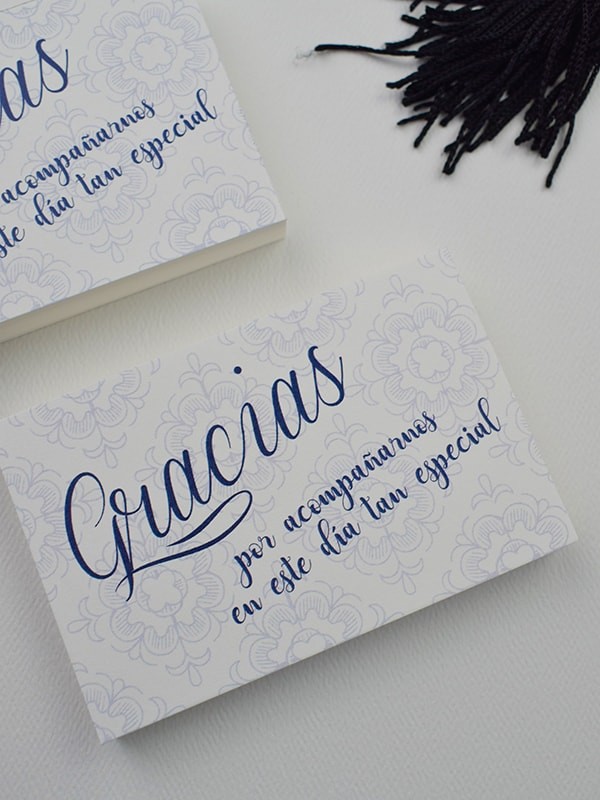 as
acompañarnos
este día tan especial
Gracias
por acompañarnos
en este día tan especial